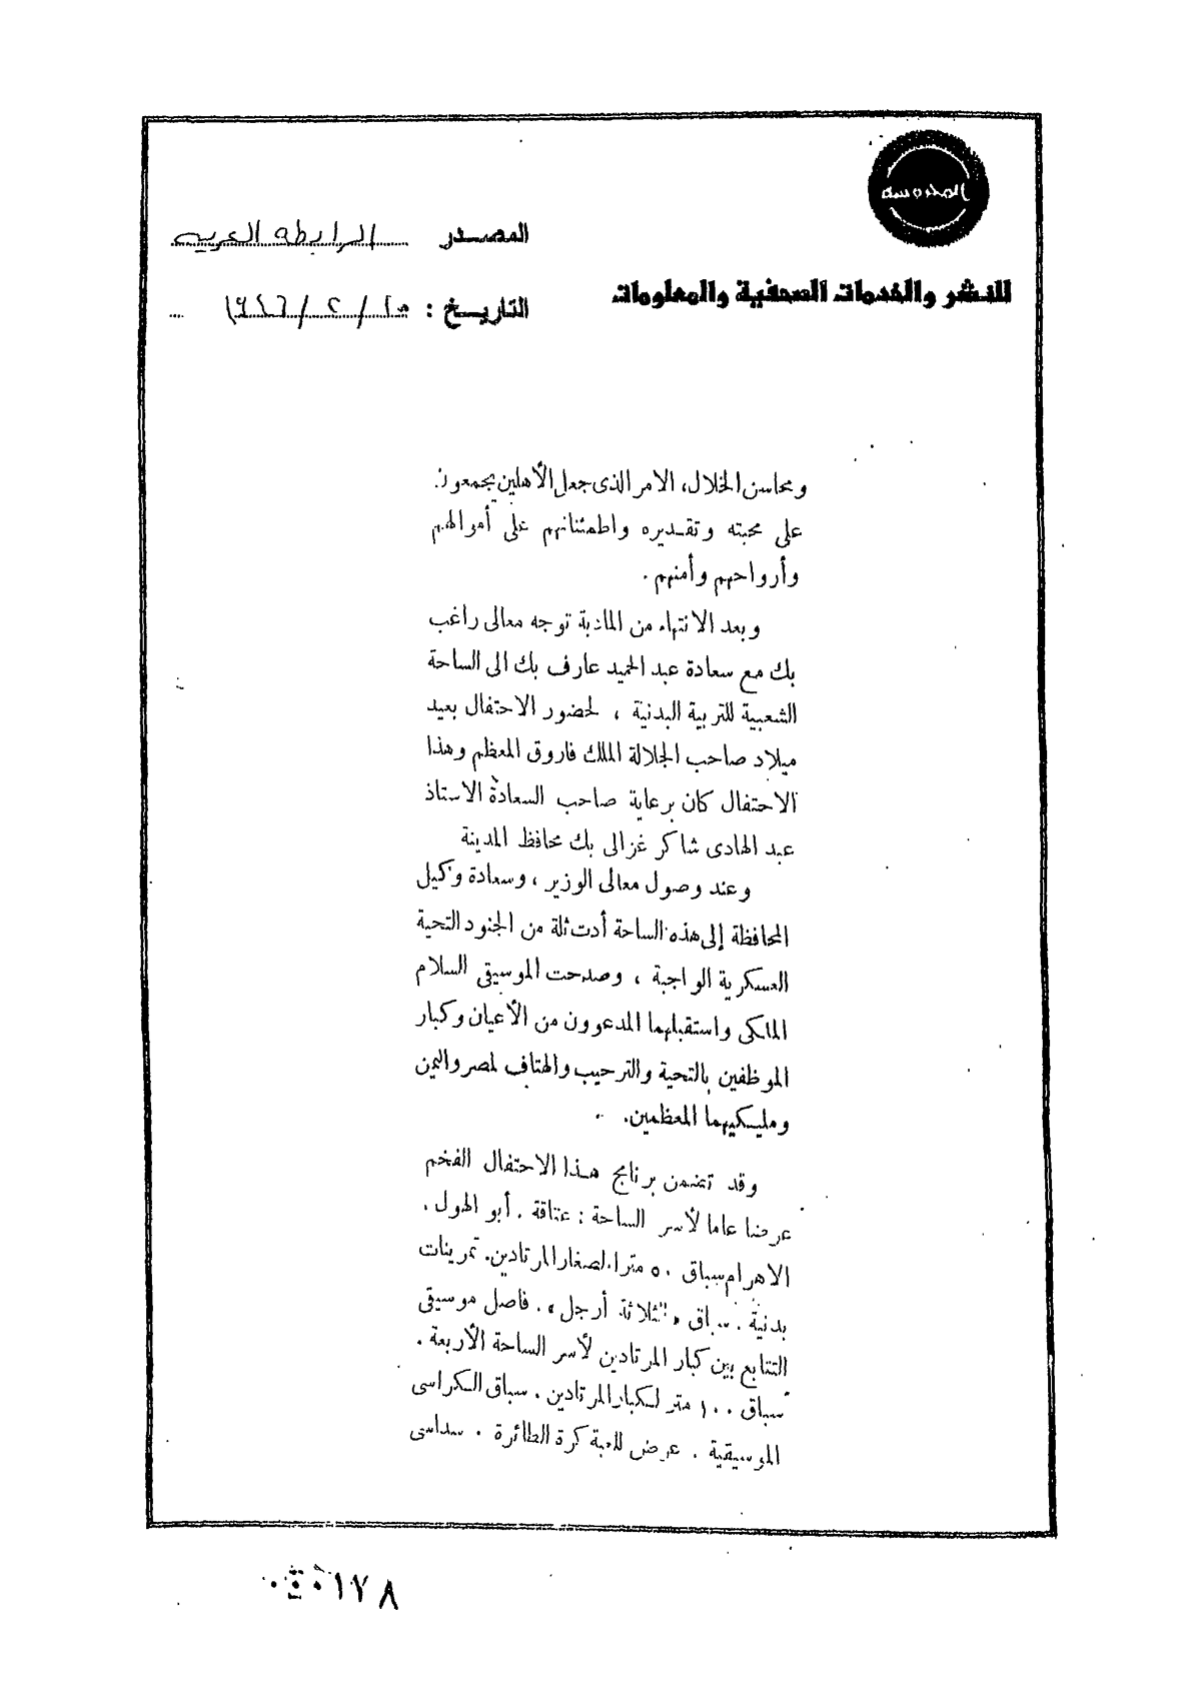 المحروسه
المصدر الرابطه العربيه
للنشر والخدمات الصحفية والمعلومات
التاريخ :
ومحاسن الخلال، الامر الذى جعل الأهلين يجمعون
على محبته وتقديره واطمئنانهم على أموالهم
وأرواحهم وأمنهم .
وبعد الانتهاء من المادبة توجه معالى راغب
بك مع سعادة عبد الحميد عارف بك الى الساحة
الشعبية للتربية البدنية ، لحضور الاحتفال بعيد
ميلاد صاحب الجلالة الملك فاروق المعظم وهذا
الاحتفال كان برعاية صاحب السعادة الاستاذ
عبد الهادى شاكر غزالى بك محافظ المدينة
وعند وصول معالى الوزير ، وسعادة وكيل
المحافظة إلى هذه الساحة أدت ثلة من الجنود التحية
العسكرية الواجبة ، وصدحت الموسيقى السلام
الملكى واستقبلهما المدعوون من الأعيان وكبار
الموظفين بالتحية والترحيب والهتاف لمصر واليمن
ومليكيهما المعظمين.
وقد تضمن برنامج هذا الاحتفال الفخم
عرضا عاما لأسر الساحة : عتاقة . أبو الهول .
الاهرام سباق ٥٠ مترا لصغار المرتادين. تمرينات
بدنية . سباق «الثلاثة أرجل» . فاصل موسيقى
التتابع بين كبار المرتادين لأسر الساحة الأربعة .
سباق ١٠٠ متر لكبار المرتادين . سباق الكراسى
الموسيقية . عرض للعبة كرة الطائرة . سداسى